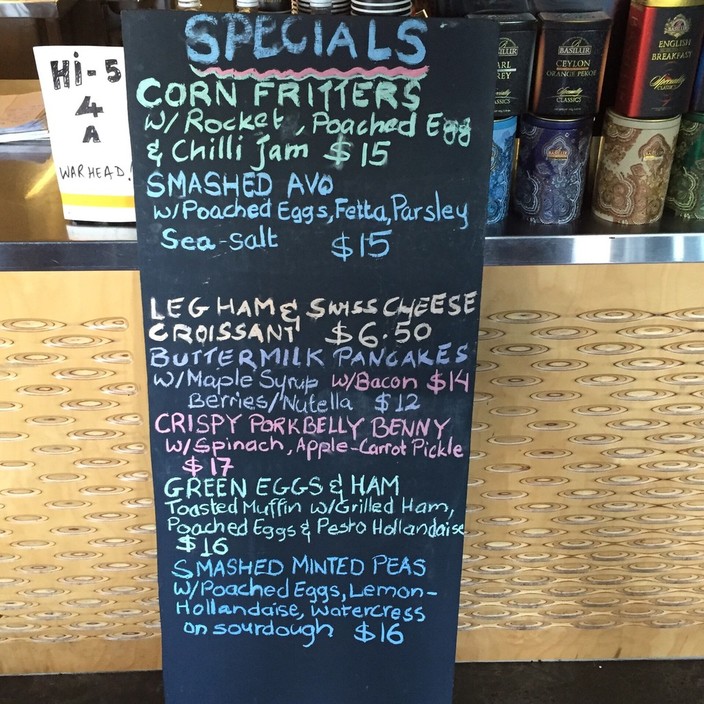 SPECIALS
CORN FRITTERS
W/ Rocket, Poached Egg
& Chilli Jam $15
SMASHED AVO
W/Poached Eggs, Fetta, Parsley
Sea-Salt $15
LEG HAM & SWISS CHEESE
CROISSANT $6.50
BUTTERMILK PANCAKES
W/Maple Syrup W/Bacon $14
Berries/Nutella $12
CRISPY PORKBELLY BENNY
W/Spinach, Apple-Carrot Pickle
$17
GREEN EGGS & HAM
Toasted Muffin W/Grilled Ham,
Poached Eggs & Pesto Hollandaise
$16
SMASHED MINTED PEAS
W/Poached Eggs, Lemon-
Hollandaise, Watercress
on sourdough $16
Hi-5
4
A
WARHEAD!
BASILUR
EARL
GREY
CLASSICS
BASILUR
CEYLON
ORANGE PEKOE
Specialty
CLASSICS
ENGLISH
BREAKFAST
Specialty
CLASSICS
BASILUR